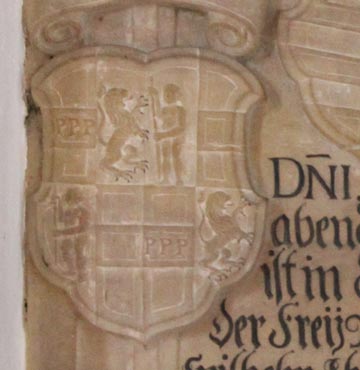 PPP
PPP
DÑI
aben
ist in
der Freÿ